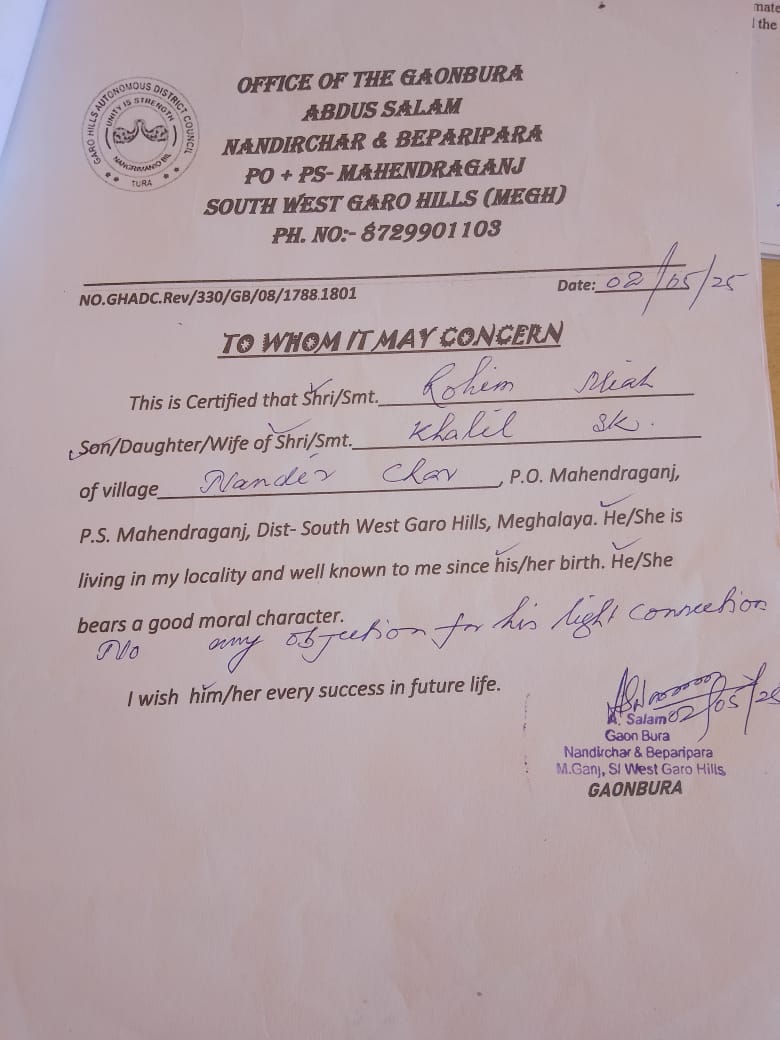 mate
l the
GARO HILLS AUTONOMOUS DISTRICT COUNCIL
UNITY IS STRENGTH
TURA
OFFICE OF THE GAONBURA
ABDUS SALAM
NANDIRCHAR & BEPARIPARA
PO + PS- MAHENDRAGANJ
SOUTH WEST GARO HILLS (MEGH)
PH. NO:- 8729901103
NO.GHADC.Rev/330/GB/08/1788.1801 Date: 02/05/25
TO WHOM IT MAY CONCERN
This is Certified that Shri/Smt. Rohim Miah
Son/Daughter/Wife of Shri/Smt. Khalil SK.
of village Nandir Char, P.O. Mahendraganj,
P.S. Mahendraganj, Dist- South West Garo Hills, Meghalaya. He/She is
living in my locality and well known to me since his/her birth. He/She
bears a good moral character.
No any objection for his light connection
I wish him/her every success in future life.
02/05/25
A. Salam
Gaon Bura
Nandirchar & Beparipara
M.Ganj, S/ West Garo Hills
GAONBURA